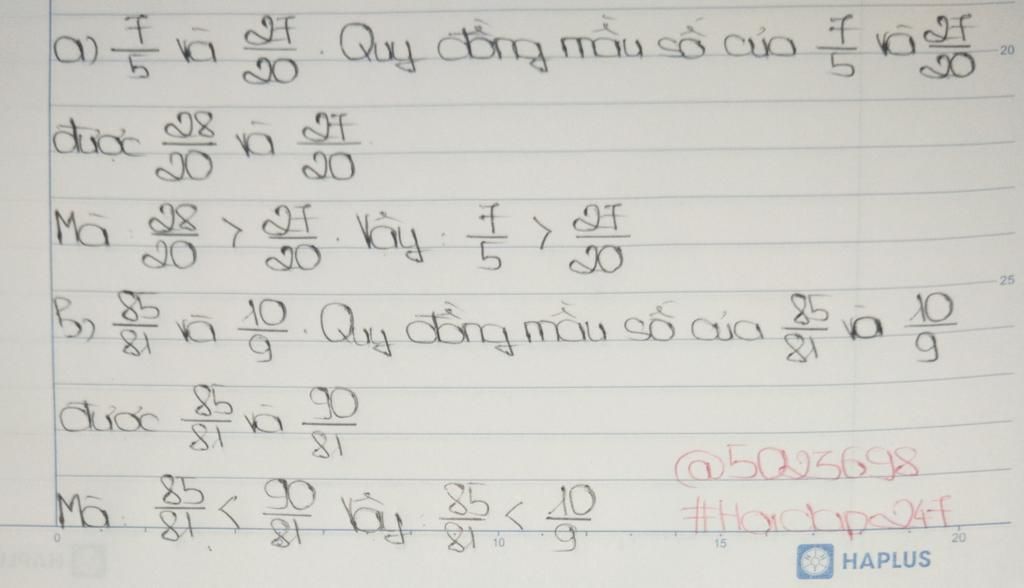 a) 7/5 và 27/20. Quy đồng mẫu số của 7/5 và 27/20
20
được 28/20 và 27/20
Mà: 28/20 > 27/20. Vậy: 7/5 > 27/20
25
B) 85/81 và 10/9. Quy đồng mẫu số của 85/81 và 10/9
được 85/81 và 90/81
@5023698
Mà: 85/81 < 90/81 Vậy: 85/81 < 10/9
0 10 15 20
HAPLUS